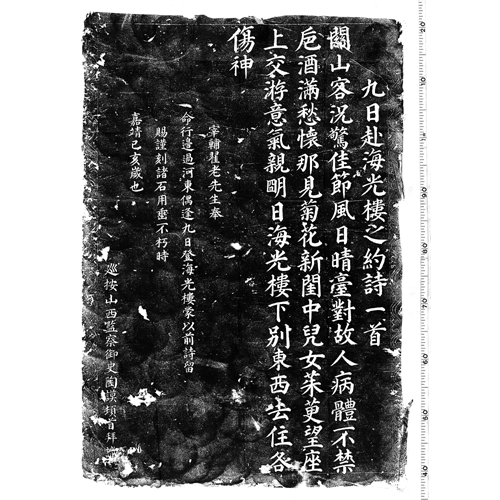 九日赴海光樓之約詩一首
關山客況驚佳節風日晴臺對故人病體不禁
巵酒滿愁懷那見菊花新閨中兒女茱萸望座
上交游意氣親明日海光樓下別東西去住各
傷神
宰輔翟老先生奉
命行邊過河東偶逢九日登海光樓蒙以前詩留
賜謹刻諸石用垂不朽時
嘉靖己亥歲也
巡按山西監察御史陶謨頓首拜